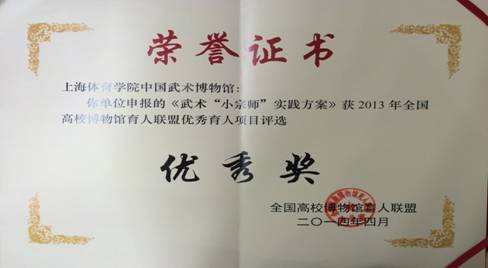 荣誉证书
上海体育学院中国武术博物馆：
你单位申报的《武术“小宗师”实践方案》获 2013 年全国
高校博物馆育人联盟优秀育人项目评选
优秀奖
全国高校博物馆育人联盟
二〇一四年四月